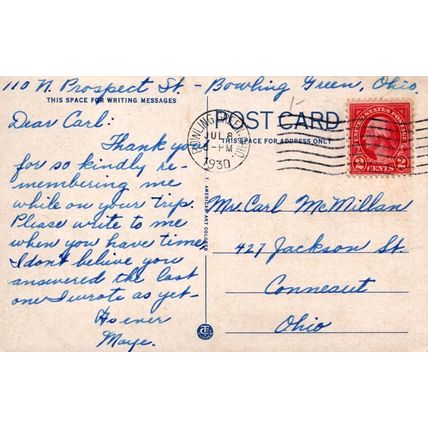 110 N. Prospect St. - Bowling Green, Ohio.
THIS SPACE FOR WRITING MESSAGES
POST CARD
THIS SPACE FOR ADDRESS ONLY
BOWLING GREEN, OHIO
JUL 8
5-PM
1930
UNITED STATES POSTAGE
2 CENTS 2
Dear Carl:
Thank you
for so kindly re-
membering me
while on your trip.
Please write to me
when you have time
I don't belive you
answered the last
one I wrote as yet-
As ever
Maye.
Mr. Carl McMillan
427 Jackson St.
Conneaut
Ohio
AMERICAN ART COLORED